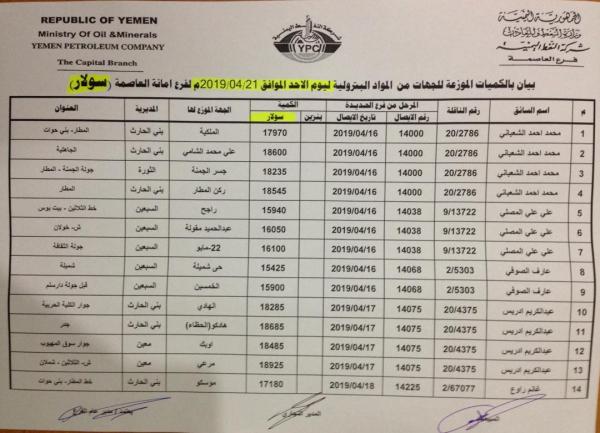 REPUBLIC OF YEMEN
Ministry Of Oil &Minerals
YEMEN PETROLEUM COMPANY
The Capital Branch
YPC
شركة النفط اليمنية
الجمهورية اليمنية
شركة النفط اليمنية
فرع العاصمة
بيان بالكميات الموزعة للجهات من المواد البترولية ليوم الاحد الموافق 2019/04/21م لفرع امانة العاصمة (سولار)
م اسم السائق رقم الناقلة المرحل من فرع الحديدة الكمية الجهة الموزع لها المديرية العنوان
رقم الايصال تاريخ الايصال بنزين سولار
1 محمد احمد الشعباني 20/2786 14000 2019/04/16 17970 الملكية بني الحارث المطار- بني حوات
2 محمد احمد الشعباني 20/2786 14000 2019/04/16 18600 علي محمد الشامي بني الحارث الجاهلية
3 محمد احمد الشعباني 20/2786 14000 2019/04/16 18235 جسر الجمنة الثورة جولة الجمنة - المطار
4 محمد احمد الشعباني 20/2786 14000 2019/04/16 18545 ركن المطار بني الحارث المطار
5 علي علي المصلي 9/13722 14038 2019/04/16 15940 راجح السبعين خط الثلاثين - بيت بوس
6 علي علي المصلي 9/13722 14038 2019/04/16 16050 عبدالحميد مقولة السبعين ش- خولان
7 علي علي المصلي 9/13722 14038 2019/04/16 16100 22-مايو السبعين جولة الثقافة
8 عارف الصوفي 2/5303 14068 2019/04/16 15425 حى شميلة السبعين شميلة
9 عارف الصوفي 2/5303 14068 2019/04/16 15900 الخمسين السبعين قبل جولة دارسلم
10 عبدالكريم ادريس 20/4375 14075 2019/04/17 18285 الهادي بني الحارث جوار الكلية الحربية
11 عبدالكريم ادريس 20/4375 14075 2019/04/17 18685 هادكو(الحظاء) بني الحارث جدر
12 عبدالكريم ادريس 20/4375 14075 2019/04/17 18485 اوبك معين جوار سوق المهبوب
13 عبدالكريم ادريس 20/4375 14075 2019/04/17 18925 مرعي معين ش- الثلاثين - شملان
14 غانم راوع 2/67077 14225 2019/04/18 17180 موسكو بني الحارث خط المطار- بني حوات
المدير التجاري